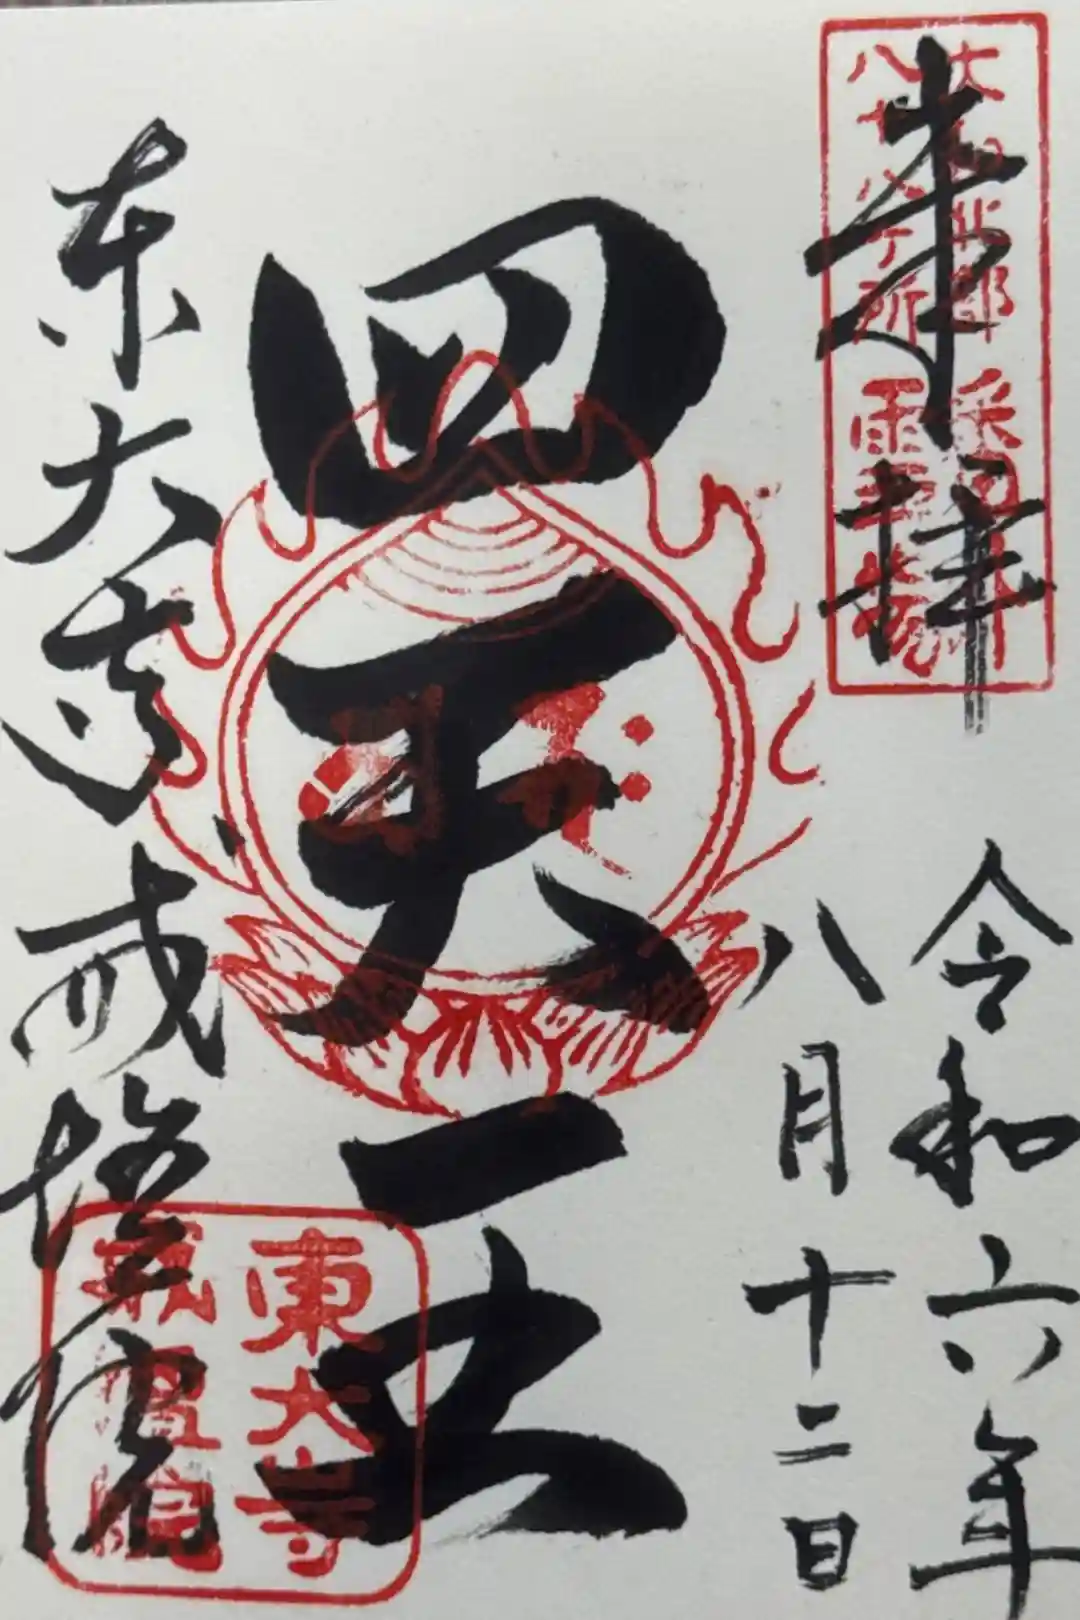 奉拝
大和北部
八十八ヶ所霊場
令和六年
八月十二日
四天王
東大寺戒壇院
東大寺
戒壇院